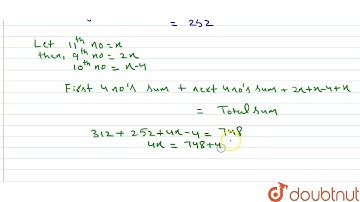 = 252
Let 11th no = x
then, 9th no = 2x
10th no = x-4
First 4 no's sum + next 4 no's sum + 2x+x-4+x
= Total sum
312 + 252 + 4x - 4 = 748
4x = 748+4
doubtnut